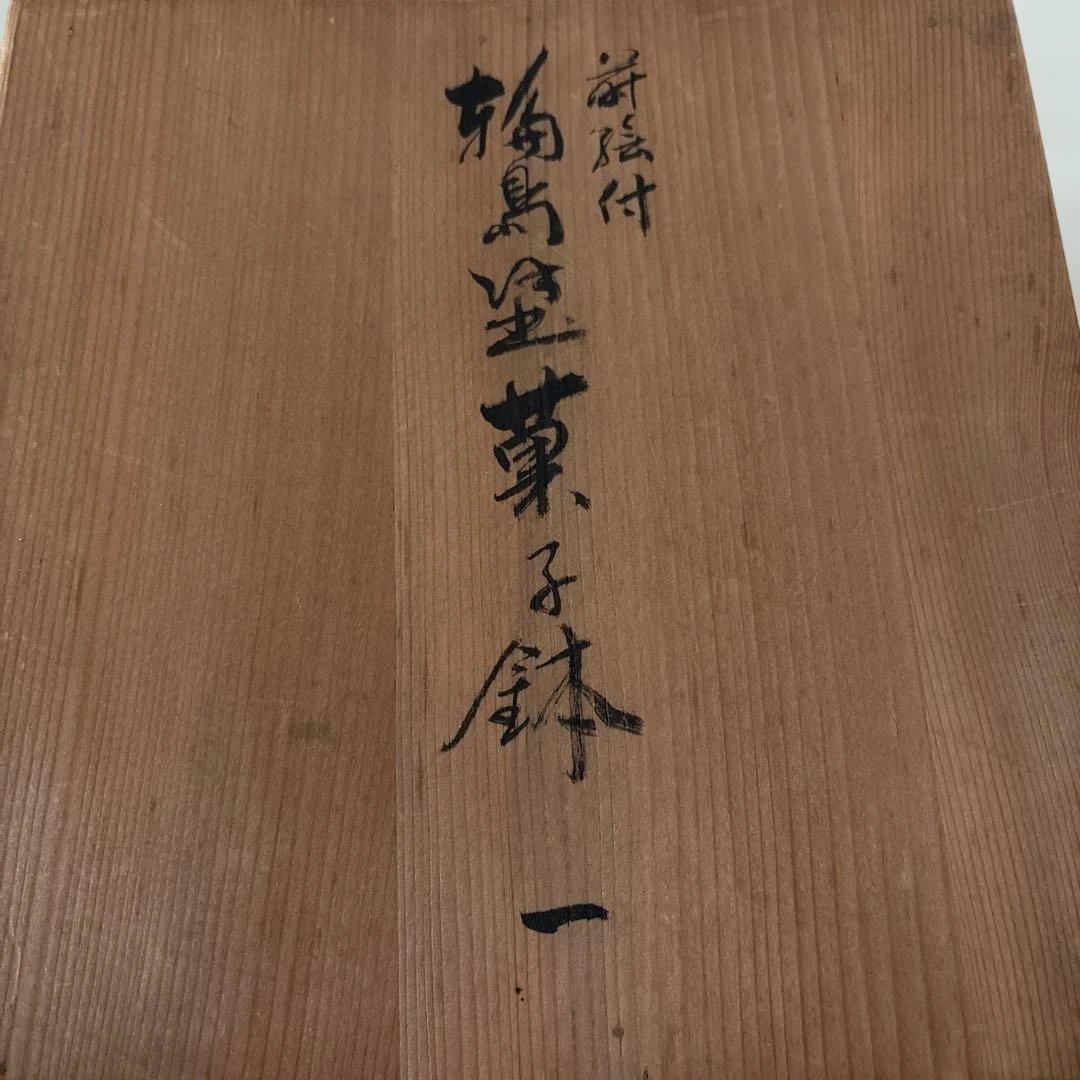 蒔絵付
輪島塗菓子鉢 一